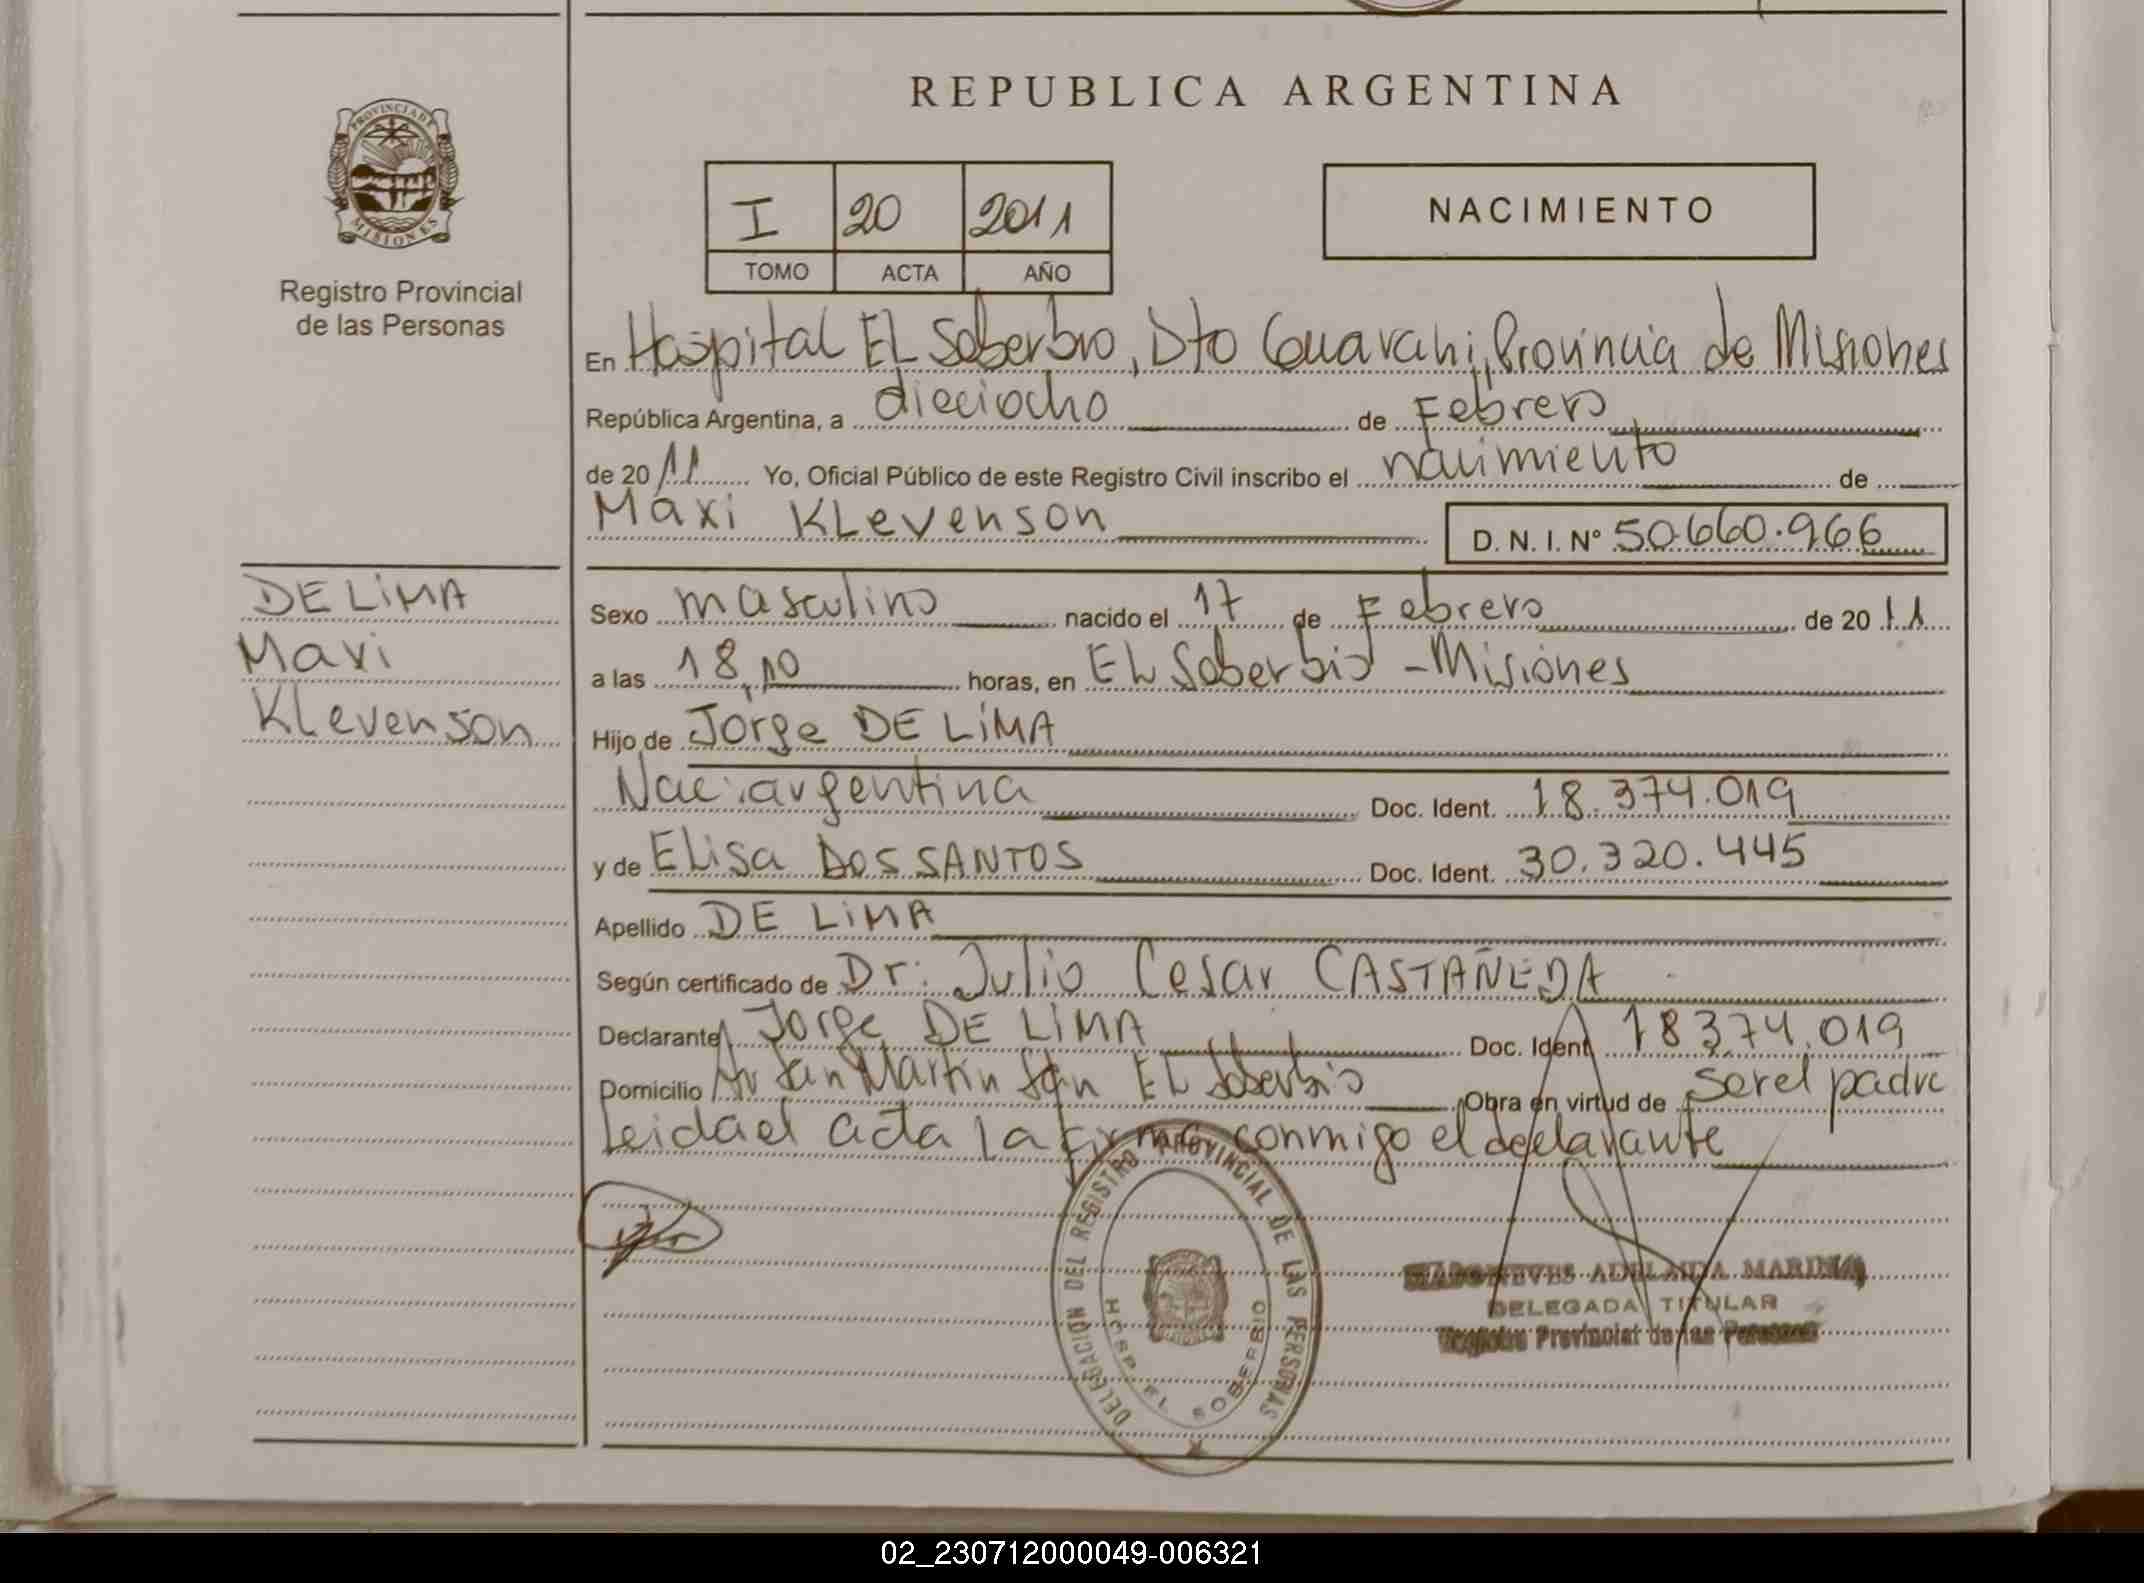 REPUBLICA ARGENTINA
PROVINCIA DE
MISIONES
Registro Provincial
de las Personas
I 20 2011
TOMO ACTA AÑO
NACIMIENTO
En Hospital EL Soberbio, Dto Guarani, Provincia de Misiones
República Argentina, a dieciocho de Febrero
de 2011 Yo, Oficial Público de este Registro Civil inscribo el nacimiento de
Maxi KLevenson D. N. I. N° 50.660.966
DE LiMA
Maxi
Klevenson
Sexo masculino nacido el 17 de Febrero de 2011
a las 18,10 horas, en EL Soberbio - Misiones
Hijo de Jorge DE LiMA
Nac: argentina Doc. Ident. 18.374.019
y de ELisa DOS SANTOS Doc. Ident. 30.320.445
Apellido DE LiMA
Según certificado de Dr: Julio Cesar CASTAÑEDA
Declarante Jorge DE LiMA Doc. Ident. 18374.019
Domicilio Av San Martin S/n EL Soberbio Obra en virtud de ser el padre
Leida el acta la firma conmigo el declarante
DELEGACION DEL REGISTRO PROVINCIAL DE LAS PERSONAS
HOSP. EL SOBERBIO
ADELAIDA MARINA
DELEGADA TITULAR
Registro Provincial de las Personas
02_230712000049-006321